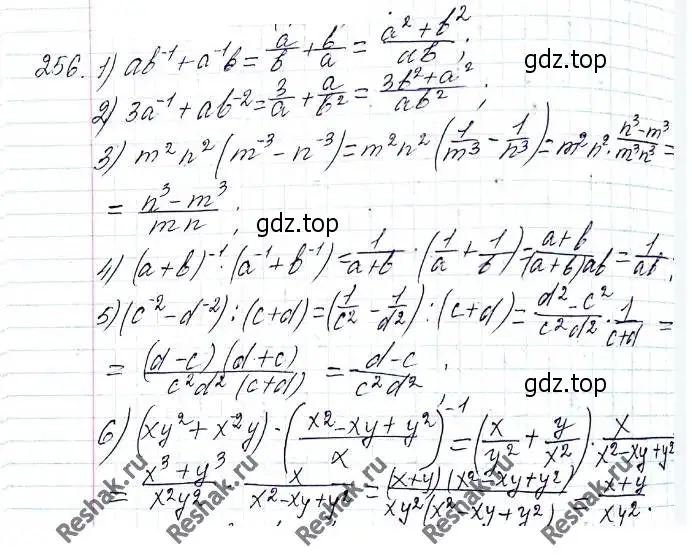 256. 1) ab⁻¹ + a⁻¹b = a/b + b/a = (a² + b²)/(ab);
2) 3a⁻¹ + ab⁻² = 3/a + a/b² = (3b² + a²)/(ab²);
3) m²n²(m⁻³ − n⁻³) = m²n²(1/m³ − 1/n³) = m²n² · (n³ − m³)/(m³n³) =
= (n³ − m³)/(mn);
4) (a + b)⁻¹ · (a⁻¹ + b⁻¹) = 1/(a + b) · (1/a + 1/b) = (a + b)/((a + b)ab) = 1/(ab);
5) (c⁻² − d⁻²) : (c + d) = (1/c² − 1/d²) : (c + d) = (d² − c²)/(c²d²) · 1/(c + d) =
= ((d − c)(d + c))/(c²d²(c + d)) = (d − c)/(c²d²);
6) (xy² + x⁻²y) · ((x² − xy + y²)/x)⁻¹ = (x/y² + y/x²) · x/(x² − xy + y²)
= (x³ + y³)/(x²y²) · x/(x² − xy + y²) = ((x + y)(x² − xy + y²))/(xy²(x² − xy + y²)) = (x + y)/(xy²).
gdz.top
gdz.top
gdz.top
gdz.top
Reshak.ru
Reshak.ru
Reshak.ru
Reshak.ru